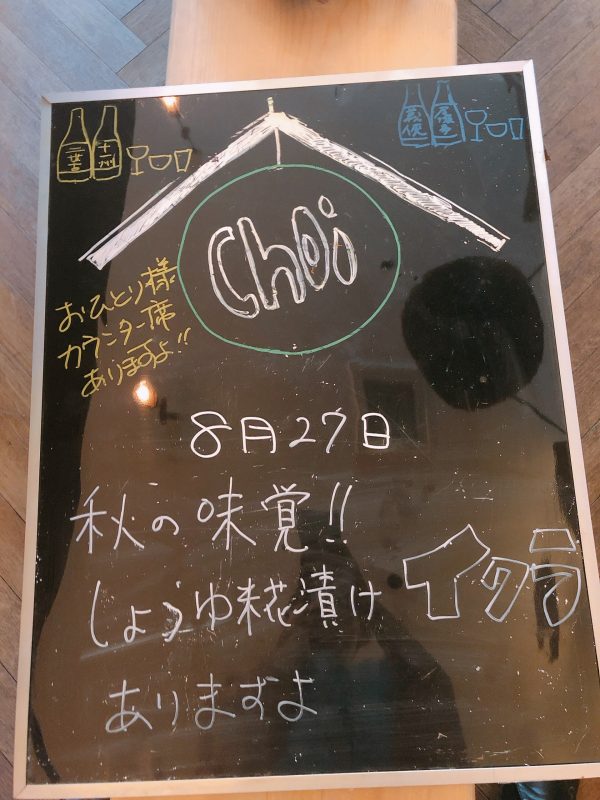 十一州
Choi
おひとり様
カウンター席
ありますよ!!
8月27日
秋の味覚!!
しょうゆ糀漬け イクラ
ありますよ